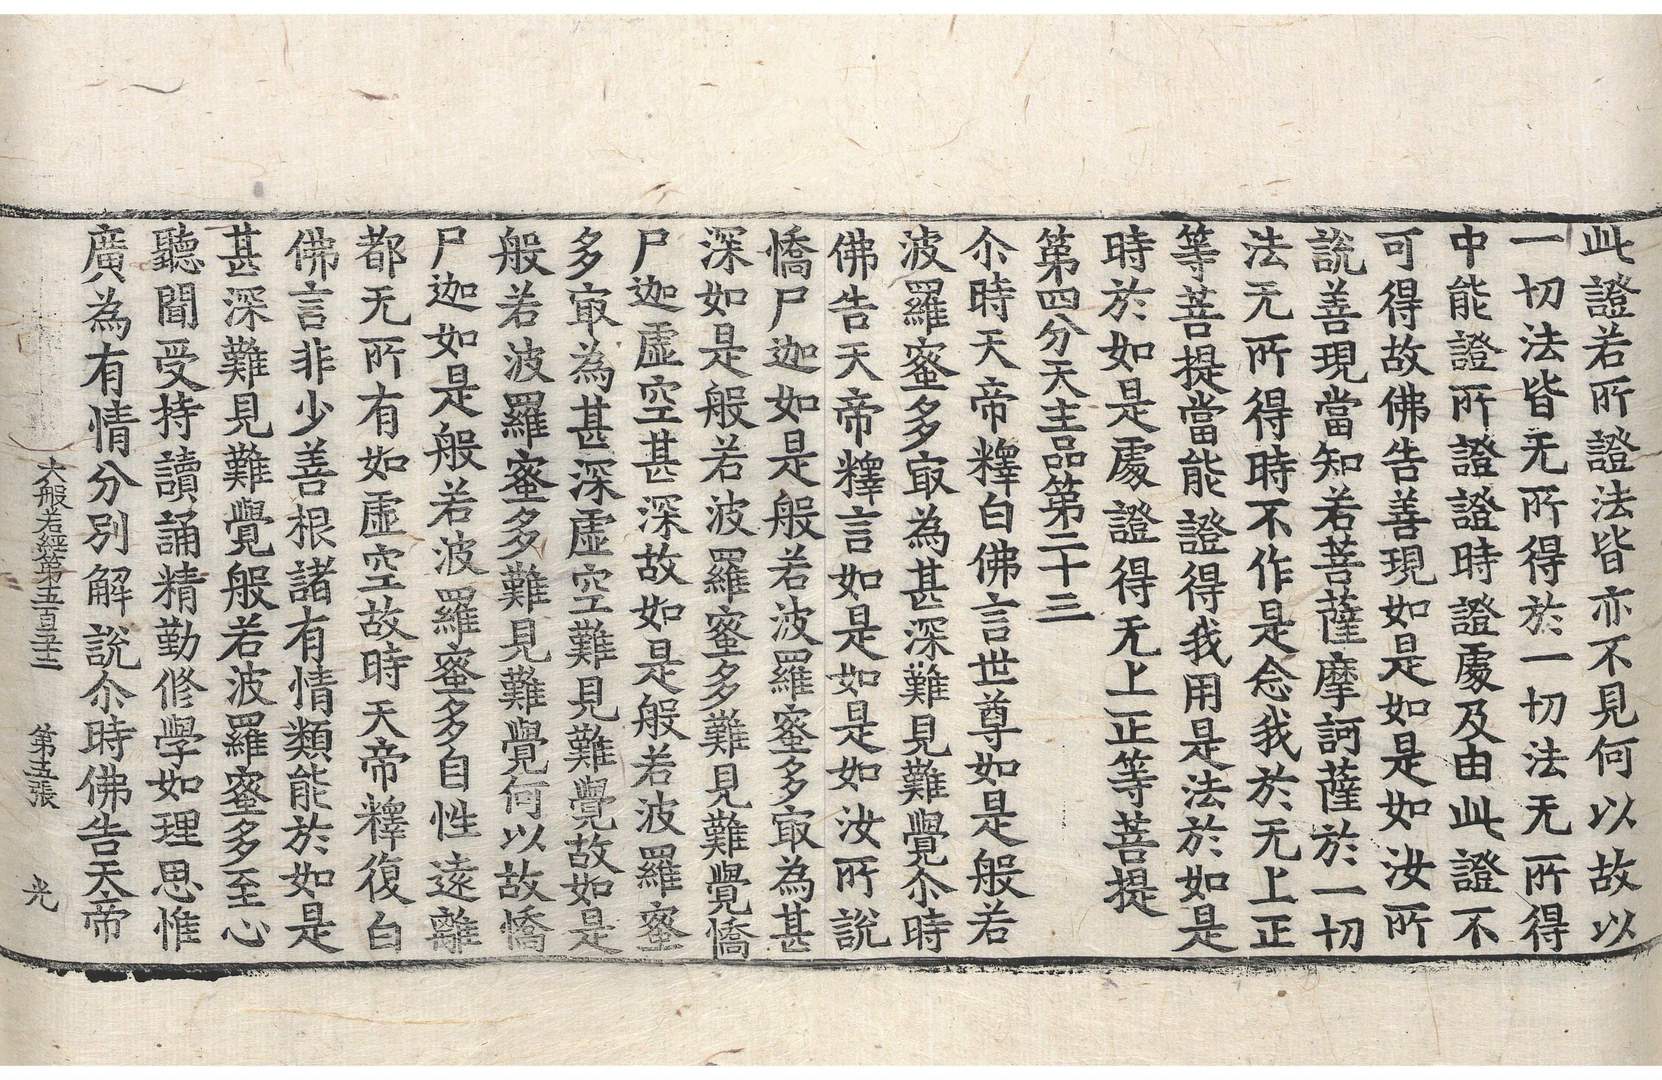 此證若所證法皆亦不見何以故以
一切法皆无所得於一切法无所得
中能證所證證時證處及由此證不
可得故佛告善現如是如是如汝所
說善現當知若菩薩摩訶薩於一切
法无所得時不作是念我於无上正
等菩提當能證得我用是法於如是
時於如是處證得无上正等菩提
第四分天主品第二十三
尒時天帝釋白佛言世尊如是般若
波羅蜜多㝡為甚深難見難覺尒時
佛告天帝釋言如是如是如汝所說
憍尸迦如是般若波羅蜜多㝡為甚
深如是般若波羅蜜多難見難覺憍
尸迦虛空甚深故如是般若波羅蜜
多㝡為甚深虛空難見難覺故如是
般若波羅蜜多難見難覺何以故憍
尸迦如是般若波羅蜜多自性遠離
都无所有如虛空故時天帝釋復白
佛言非少善根諸有情類能於如是
甚深難見難覺般若波羅蜜多至心
聽聞受持讀誦精勤修學如理思惟
廣為有情分別解說尒時佛告天帝
大般若經第五百五十二 第五張 光